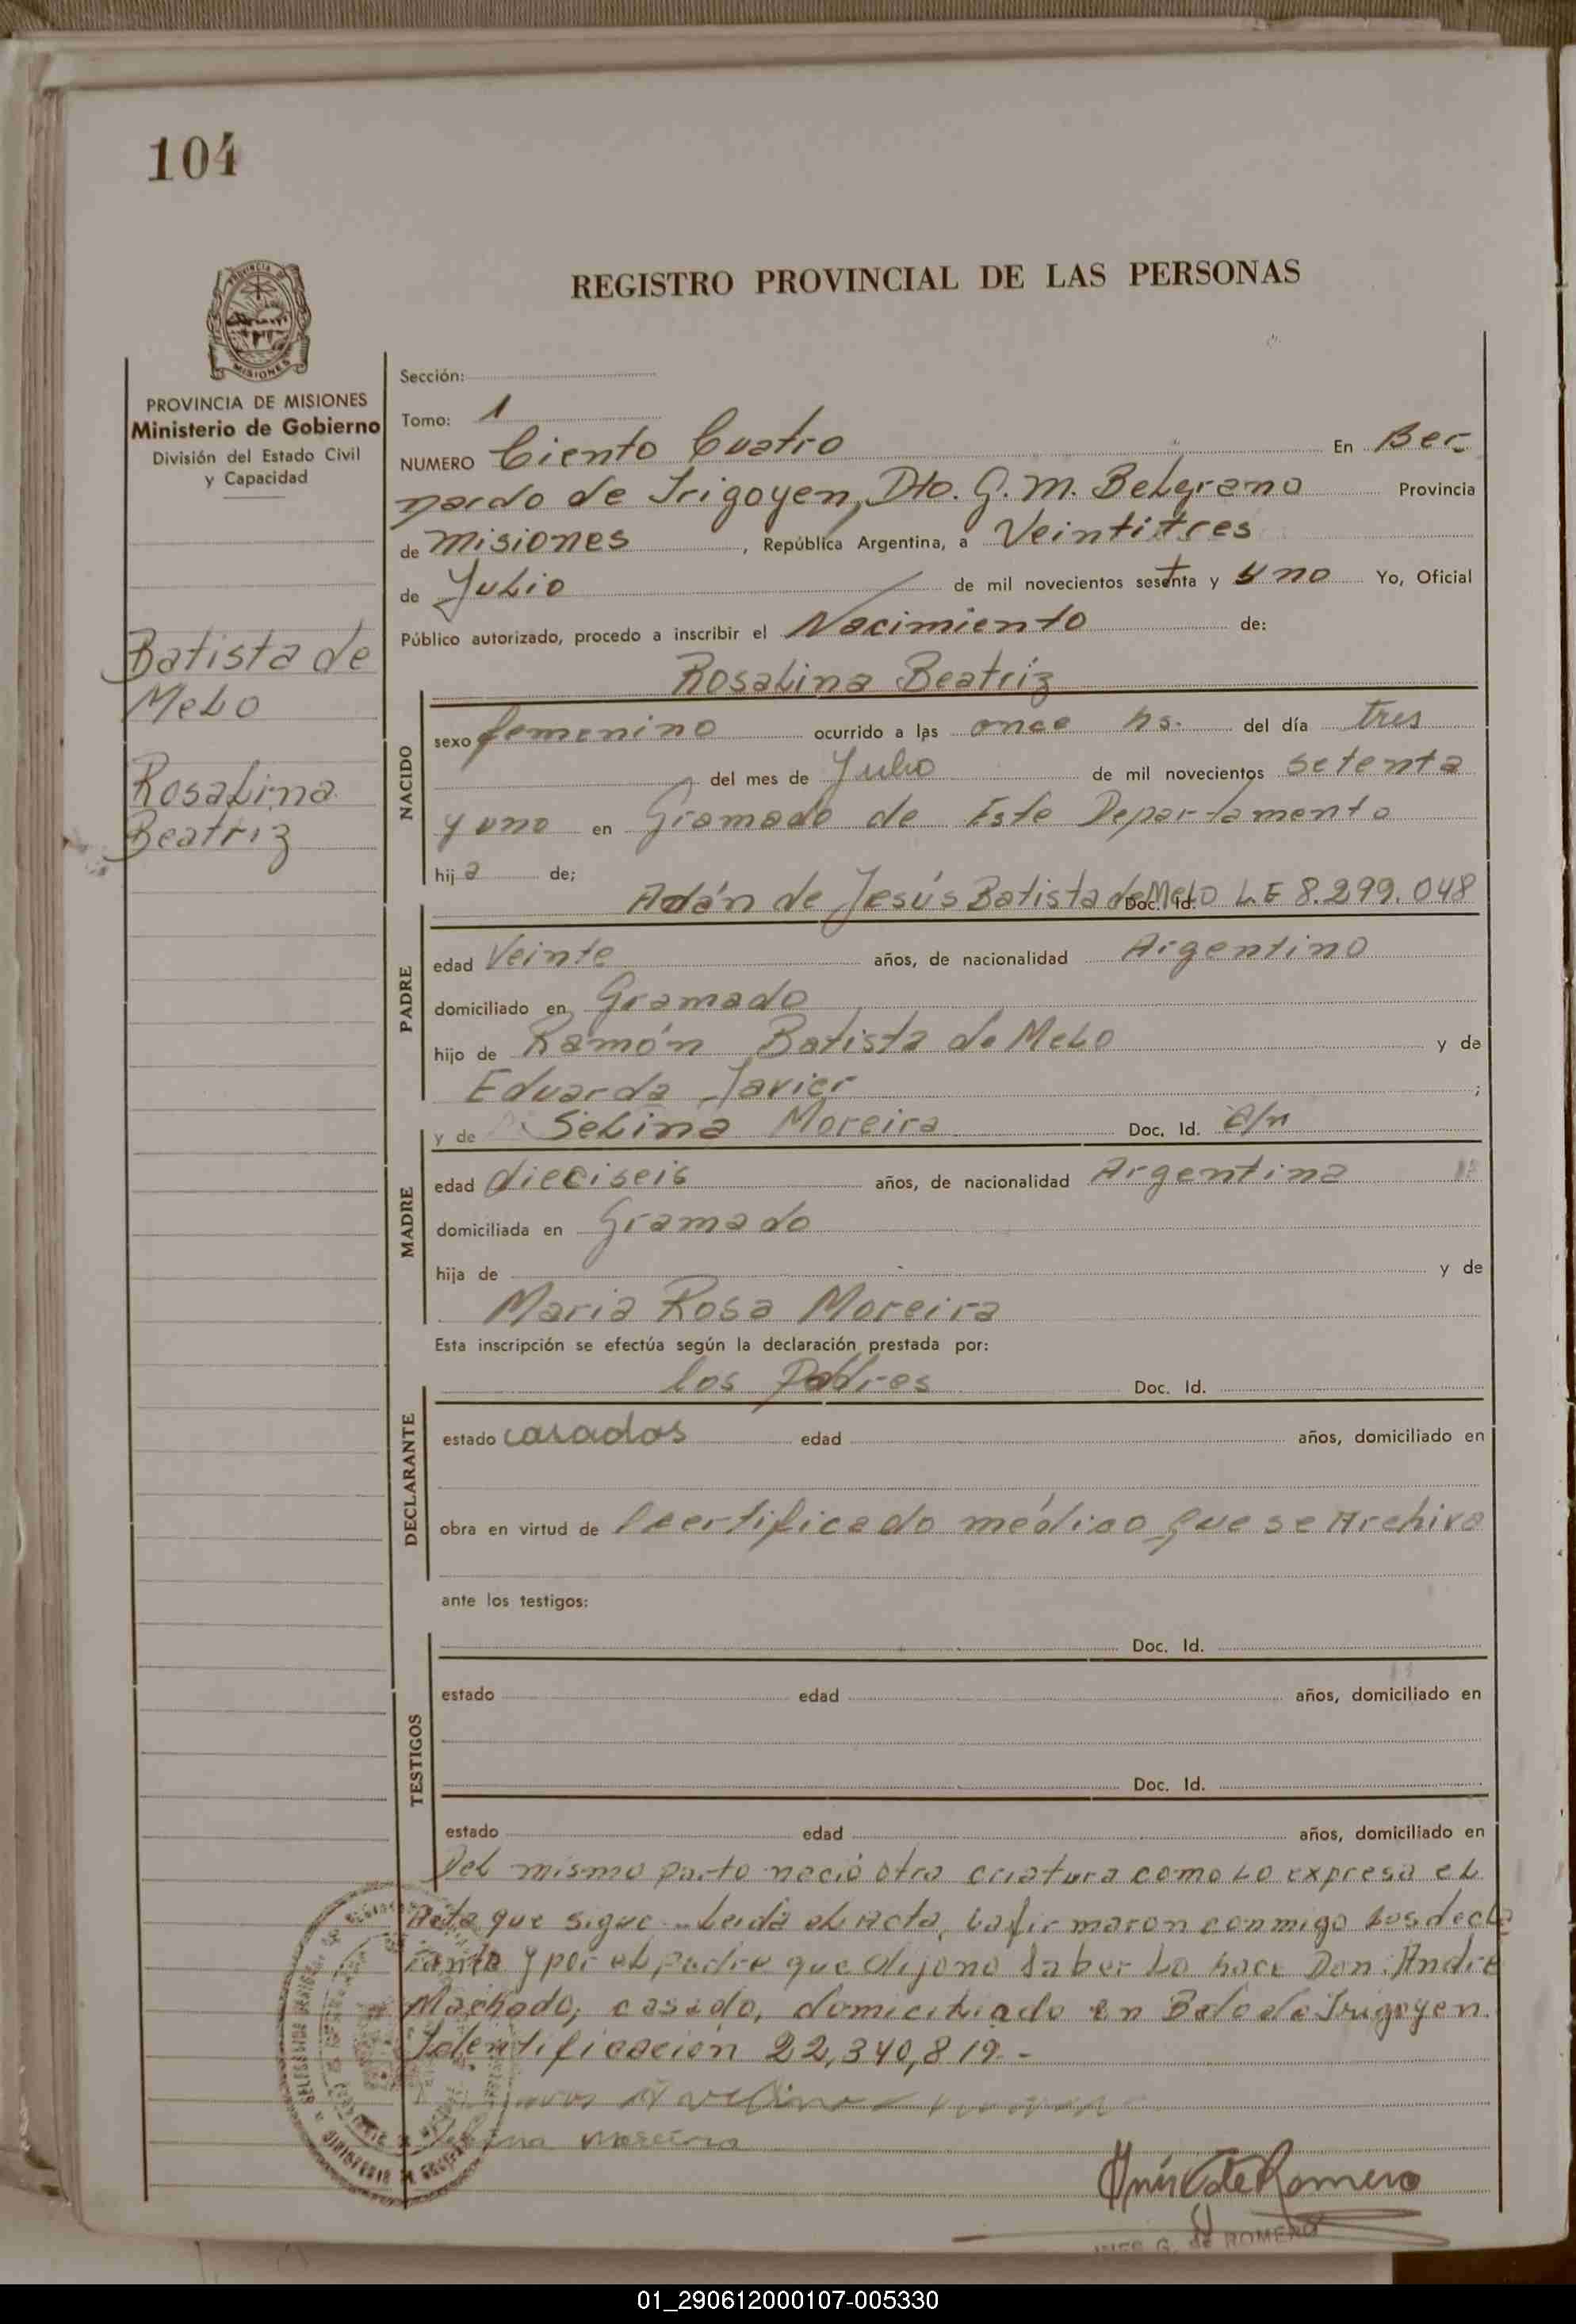 104
REGISTRO PROVINCIAL DE LAS PERSONAS
PROVINCIA DE
MISIONES
PROVINCIA DE MISIONES
Ministerio de Gobierno
División del Estado Civil
y Capacidad
Batista de
Melo
Rosalina
Beatriz
Sección:
Tomo: 1
NUMERO Ciento Cuatro En Ber-
nardo de Irigoyen, Dto. G. M. Belgrano Provincia
de Misiones, República Argentina, a Veintitres
de Julio de mil novecientos setenta y uno Yo, Oficial
Público autorizado, procedo a inscribir el Nacimiento de:
Rosalina Beatriz
NACIDO
sexo femenino ocurrido a las once hs. del día tres
del mes de Julio de mil novecientos setenta
y uno en Gramado de Este Departamento
hija de;
Adán de Jesús Batista de Melo Doc. Id. L.E 8.299.048
PADRE
edad Veinte años, de nacionalidad Argentino
domiciliado en Gramado
hijo de Ramón Batista de Melo y de
Eduarda Javier ;
y de Selina Moreira Doc. Id. s/n
MADRE
edad dieciseis años, de nacionalidad Argentina
domiciliada en Gramado
hija de y de
Maria Rosa Moreira
Esta inscripción se efectúa según la declaración prestada por:
los Padres Doc. Id.
DECLARANTE
estado casados edad años, domiciliado en
obra en virtud de certificado médico que se Archiva
ante los testigos:
Doc. Id.
TESTIGOS
estado edad años, domiciliado en
Doc. Id.
estado edad años, domiciliado en
Del mismo parto nació otra criatura como lo expresa el
Acta que sigue.- Leída el Acta, la firmaron conmigo los decla
rante y por el padre que dijo no saber lo hace Don: Andre
Machado, casado, domiciliado en Bdo de Irigoyen.
Identificación 22,340,819.-
Moreira
de Romero
INES G. de ROMERO
01_290612000107-005330